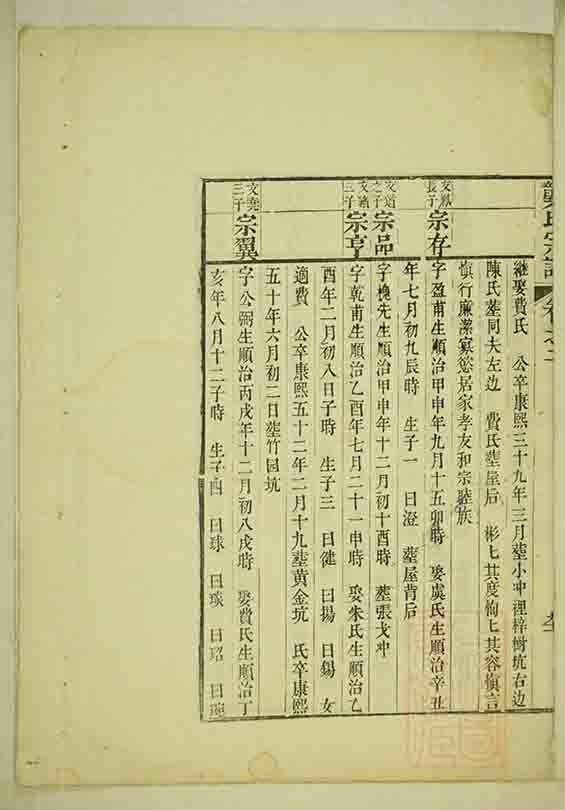 龔氏宗譜 卷之二
継娶費氏 公卒康熙三十九年三月葬小冲裡梓樹坑右边
陳氏葬同夫左边 費氏葬屋后 彬匕其度恂匕其容慎言
慎行廉潔寡慾居家孝友和宗睦族
文鳳長子 宗存 字盈甫生順治甲申年九月十五卯時 娶虞氏生順治辛丑
年七月初九辰時 生子一 曰澄 葬屋背后
之子 宗品 字槐先生順治甲申年十二月初十酉時 葬張戈冲
三子 宗亨 字乾甫生順治乙酉年七月二十一申時 娶朱氏生順治乙
酉年二月初八日子時 生子三 曰健 曰揚 曰錫 女
適費 公卒康熙五十二年二月十九葬黄金坑 氏卒康熙
五十年六月初二日葬竹园坑
文奕三子 宗翼 字公弼生順治丙戌年十二月初八戌時 娶費氏生順治丁
亥年八月十二子時 生子四 曰球 曰琰 曰玿 曰琬